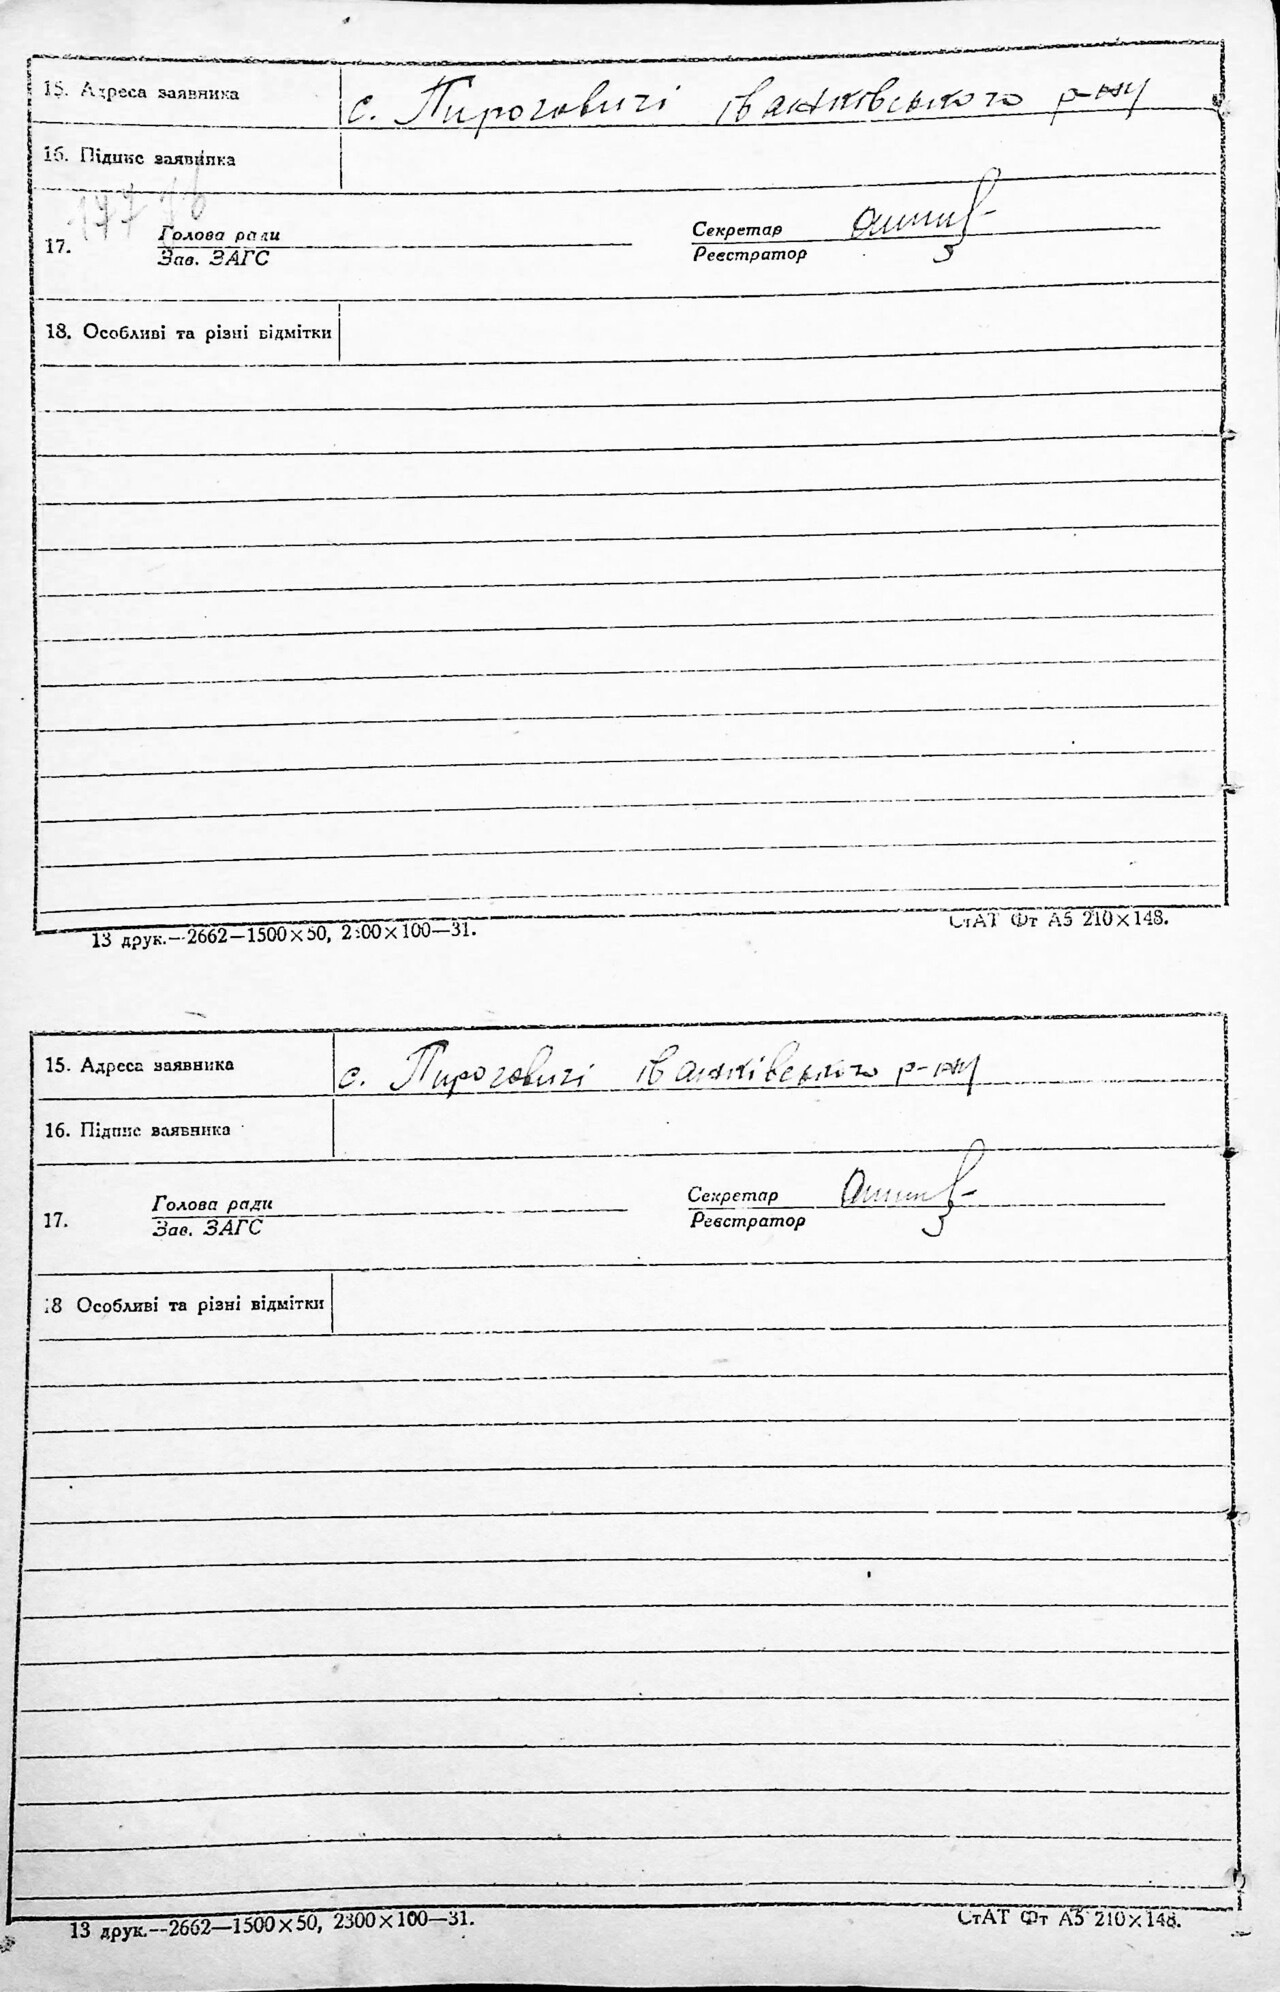 15. Адреса заявника
с. Пироговичі Іванківського р-ну
16. Підпис заявника
17.
Голова ради
Зав. ЗАГС
Секретар
Реєстратор
18. Особливі та різні відмітки
13 друк.—2662—1500×50, 2300×100—31.
СтАТ Фт А5 210×148.
15. Адреса заявника
с. Пироговичі Іванківського р-ну
16. Підпис заявника
17.
Голова ради
Зав. ЗАГС
Секретар
Реєстратор
18 Особливі та різні відмітки
13 друк.—2662—1500×50, 2300×100—31.
СтАТ Фт А5 210×148.